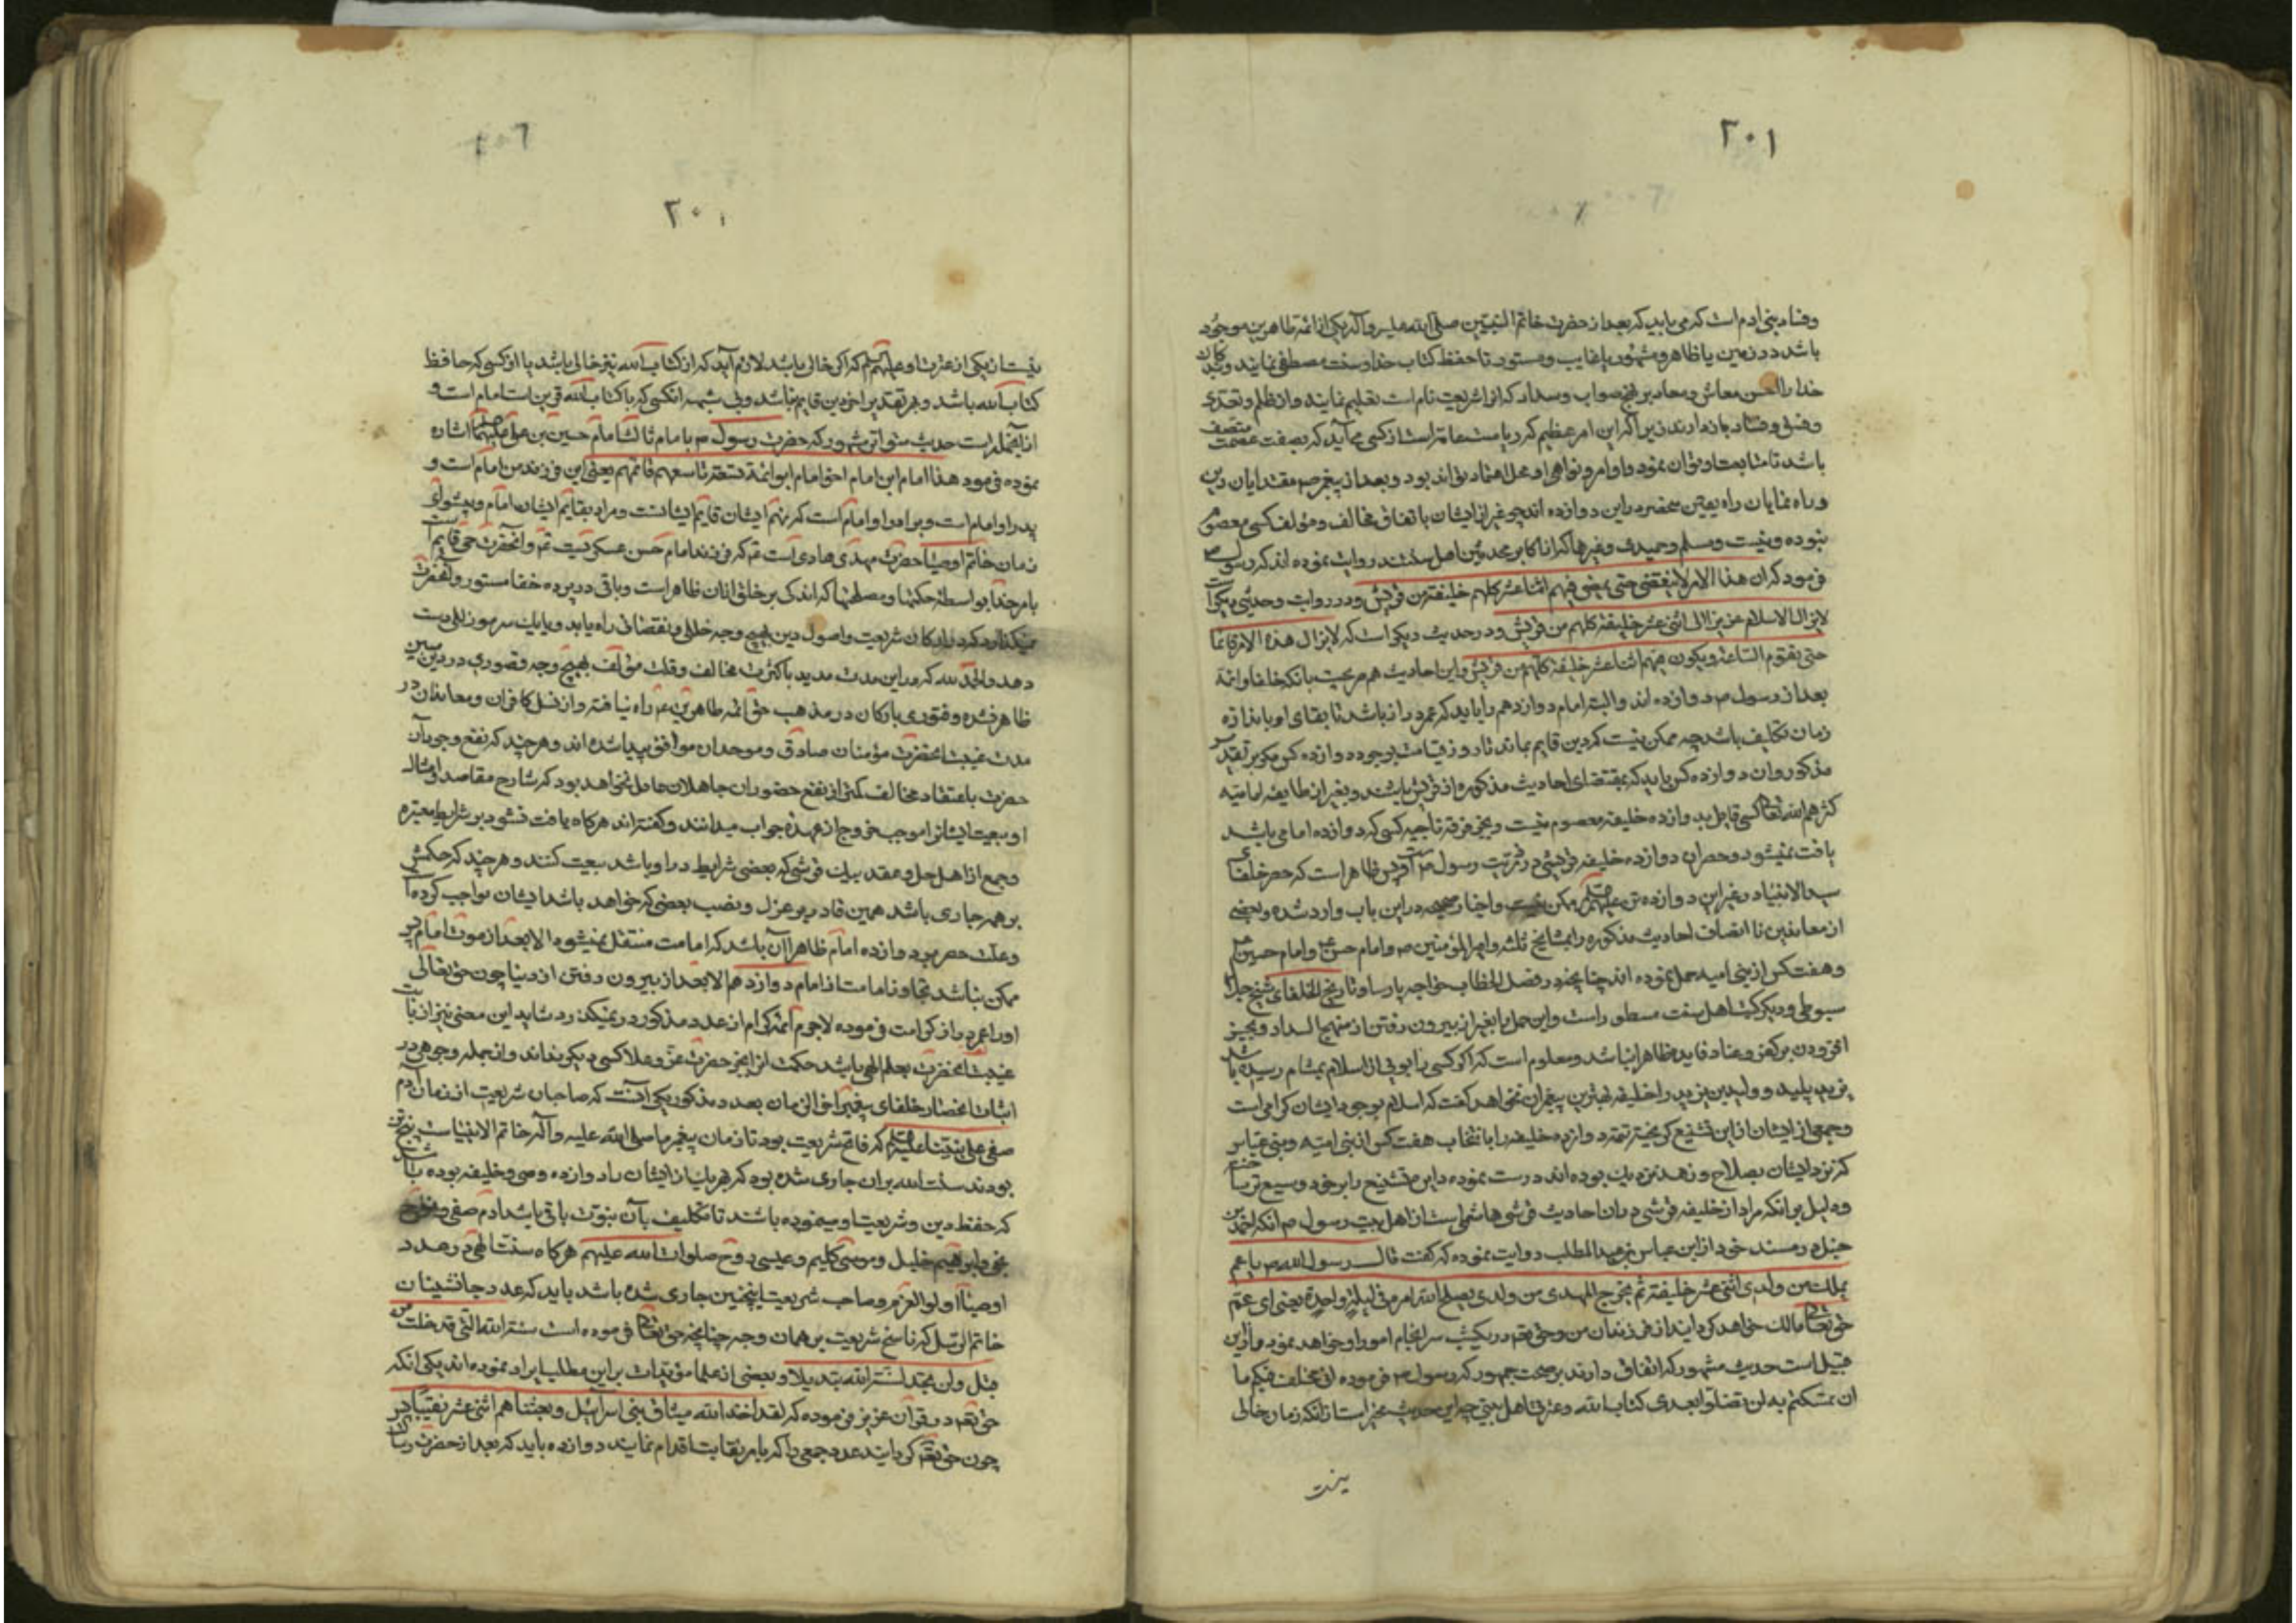 ٢٠١
وفساد بنی ادم است که می باید که بعد از حضرت خاتم النبیین صلی الله علیه وآله یکی از ائمه طاهرین موجود
باشد در زمین یا ظاهر و مشهور یا غایب و مستور تا حفظ کتاب خدا و سنت مصطفی نمایند و بندکان
خدا را احسن معاش و معاد بر نهج صواب و سداد که از شریعت تام است تعلیم نمایند و از ظلم و تعدی
وفسق وفساد بازدارند زیرا که این امر عظیم که ریاست عامه است از کسی می آید که بصفت عصمت متصف
باشد تا متابعت او توان نمود و اوامر و نواهی او محل اعتماد تواند بود و بعد از پیغمبر ص مقتدایان دین
وراه نمایان راه یقین منحصر در این دوازده اند چو غیر از ایشان باتفاق مخالف و مؤلف کسی معصوم
نبوده و نیست و مسلم و حمیدی و غیرها که از اکابر محدثین اهل سنتند روایت نموده اند که رسول ص
فرمود که ان هذا الامر لا ینقضی حتی یمضی فیهم اثنا عشر کلهم خلیفة من قریش و در روایت و حدیثی دیکر است
لایزال الاسلام عزیزا الی اثنی عشر خلیفة کلهم من قریش و در حدیث دیکر است که لایزال هذه الامر قائما
حتی یقوم الساعة و یکون فیهم اثنا عشر خلیفة کلهم من قریش و این احادیث هم صریحت بانکه خلفا و ائمه
بعد از رسول ص دوازده اند و البته امام دوازدهم را باید که عمر دراز باشد تا بقای او باندازه
زمان تکلیف باشد چه ممکن نیست که دین قایم بماند تا روز قیامت بوجود دوازده کس مکر بر تقدیر
مذکور و ان دوازده کس باید که بمقتضای احادیث مذکوره از قریش باشند و بغیر از طایفه امامیه
کثرهم الله تعالی کسی قایل بدوازده خلیفه معصوم نیست و بجز فرقه ناجیه کسی که دوازده امامی باشد
یافت نمیشود و حصر ان دوازده خلیفه قریشی در ذریت رسول ص ظاهر است که حصر خلفای
سید الانبیا در غیر این دوازده تن علیهم ممکن نیست و اخبار صحیحه در این باب وارد شده و بعضی
از معاندین نا انصاف احادیث مذکوره را بمشایخ ثلثه و امیر المؤمنین ص و امام حسن ع و امام حسین ع
وهفت کس از بنی امیه حمل نموده اند چنانچه در فصل الخطاب خواجه پارسا و تاریخ الخلفای شیخ جلال
سیوطی و دیکر کتب اهل سنت مسطور است و این حمل را بغیر از بیرون رفتن از منهج السداد و بجز
افزودن بر کفر و عناد فایده ظاهرا نباشد و معلوم است که اکر کسی را بویی از اسلام بمشام رسیده باشد
یزید پلید و ولید بن یزید را خلیفه بهترین پیغمبران نخواهد کفت که اسلام بوجود ایشان کرامی است
وجمعی از ایشان از این تشنیع کریخته تتمه دوازده خلیفه را بانتخاب هفت کس از بنی امیه و بنی عباس
که نزد ایشان بصلاح و زهد نزدیک بوده اند درست نموده و این تشنیع را بر خود وسیع تر ساخته
ودلیل بر انکه مراد از خلیفه قرشی در ان احادیث قرشی هاشمی است از اهل بیت رسول ص انکه احمد بن
حنبل در مسند خود از ابن عباس بن عبد المطلب روایت نموده که کفت قال رسول الله ص یا عم
یملک من ولدی اثنی عشر خلیفة ثم یخرج المهدی من ولدی یصلح الله امره فی لیلة واحدة یعنی ای عم
حق تعالی مالک خواهد کردانید از فرزندان من و حق تعالی در یکشب سرانجام امور او خواهد نمود و از این
قبیل است حدیث مشهور که اتفاق دارند بر صحت جمهور که رسول ص فرموده انی مخلف فیکم ما
ان تمسکتم به لن تضلوا بعدی کتاب الله و عترتی اهل بیتی چه این حدیث مخبر است از انکه زمان خالی
نیست
٢٠١
نیست از یکی از عترت او علیهم که اکر خالی باشد لازم آید که از کتاب الله نیز خالی باشد یا از کسی که حافظ
کتاب الله باشد و بهر تقدیر اخر دین قایم نباشد و بی شبهه انکسی که با کتاب الله قرین است امام است و
از آنجمله است حدیث متواتر مشهور که حضرت رسول ص بامام ثالث امام حسین بن علی علیهما اشاره
نموده فرمود هذا امام ابن امام اخو امام ابو ائمة تسعة تاسعهم قائمهم یعنی این فرزند من امام است و
پدر او امام است و برادر او امام است که نهم ایشان قایم ایشانست و مراد بقایم ایشان امام و پیشوای
زمان خاتم اوصیا حضرت مهدی هادی است ع که فرزند امام حسن عسکریست ع و آنحضرت حی قایم است
بامر خدا بواسطه حکمتها و مصلحتها که اندک بر خلق از ان ظاهر است و باقی در پرده خفا مستور و آنحضرت
نمیکذارد که در ارکان شریعت و اصول دین بهیچ وجه خللی و نقصانی راه یابد و یا یک سر مو زللی دست
دهد و الحمد لله که در این مدت مدید با کثرت مخالف و قلت مؤلف بهیچ وجه قصوری در دین مبین
ظاهر نشده و فتوری بارکان در مذهب حق ائمه طاهرین ع راه نیافته و از نسل کافران و معاندان در
مدت غیبت آنحضرت مؤمنان صادق و موحدان موافق پیدا شده اند و هر چند که نفع وجود آن
حضرت باعتقاد مخالف کمتر از نفع حضور ان جاهلان جاهل نخواهد بود که شارح مقاصد و امثال
او بیعت ایشان را موجب خروج از عهده جواب میدانند و کفته اند هرکاه یافت نشود بر شرایط معتبره
وجمع از اهل حل و عقد بیک قرشی که بعضی شرایط در او باشد بیعت کنند و هر چند که حکمش
بر همه جاری باشد همین قادر بر عزل و نصب بعضی که خواهد باشد ایشان واجب کرده
وعلت حصر در دوازده امام ظاهرا آن باشد که امامت منتقل نمیشود الا بعد از موت امام بر
ممکن نباشد تجاوز امامت از امام دوازدهم الا بعد از بیرون رفتن از دنیا چون حق تعالی
او را عمر دراز کرامت فرموده لاجرم ائمه کرام از عدد مذکور در نمیکذرد شاید این معنی نیز از بابت
غیبت آنحضرت بعلم الهی باشد حکمت انرا بجز حضرت عز و علا کسی دیکر نداند و از جمله وجوهی در
اثبات انحصار خلفای پیغمبر اخر الزمان بعدد مذکور یکی آنست که صاحبان شریعت از زمان آدم
صفی علی نبینا علیه که فاتح شریعت بود تا زمان پیغمبر ما صلی الله علیه و آله خاتم الانبیاست پنج تن
بودند سنت الله بران جاری شده بود که هر یک از ایشان را دوازده وصی و خلیفه بوده باشد
که حفظ دین و شریعت او مینموده باشند تا تکلیف بآن نبوت باقی باشد ادم صفی و نوح
نجی و ابرهیم خلیل و موسی کلیم و عیسی روح صلوات الله علیهم هرکاه سنت الهی در عدد
اوصیا اولو العزم و صاحب شریعت اینچنین جاری شده باشد باید که عدد جانشینان
خاتم الرسل که ناسخ شریعت بر همان وجه چنانچه حق تعالی فرموده است سنة الله التی قد خلت من
قبل و لن تجد لسنة الله تبدیلا و بعضی از علما مؤیدات بر این مطلب ایراد نموده اند یکی انکه
حق تعالی در قرآن عزیز فرموده که لقد اخذ الله میثاق بنی اسرائیل و بعثنا هم اثنی عشر نقیبا
چون حق تعالی کردانید عدد جمعی را که بامر نقابت اقدام نمایند دوازده باید که بعد از حضرت رسالت